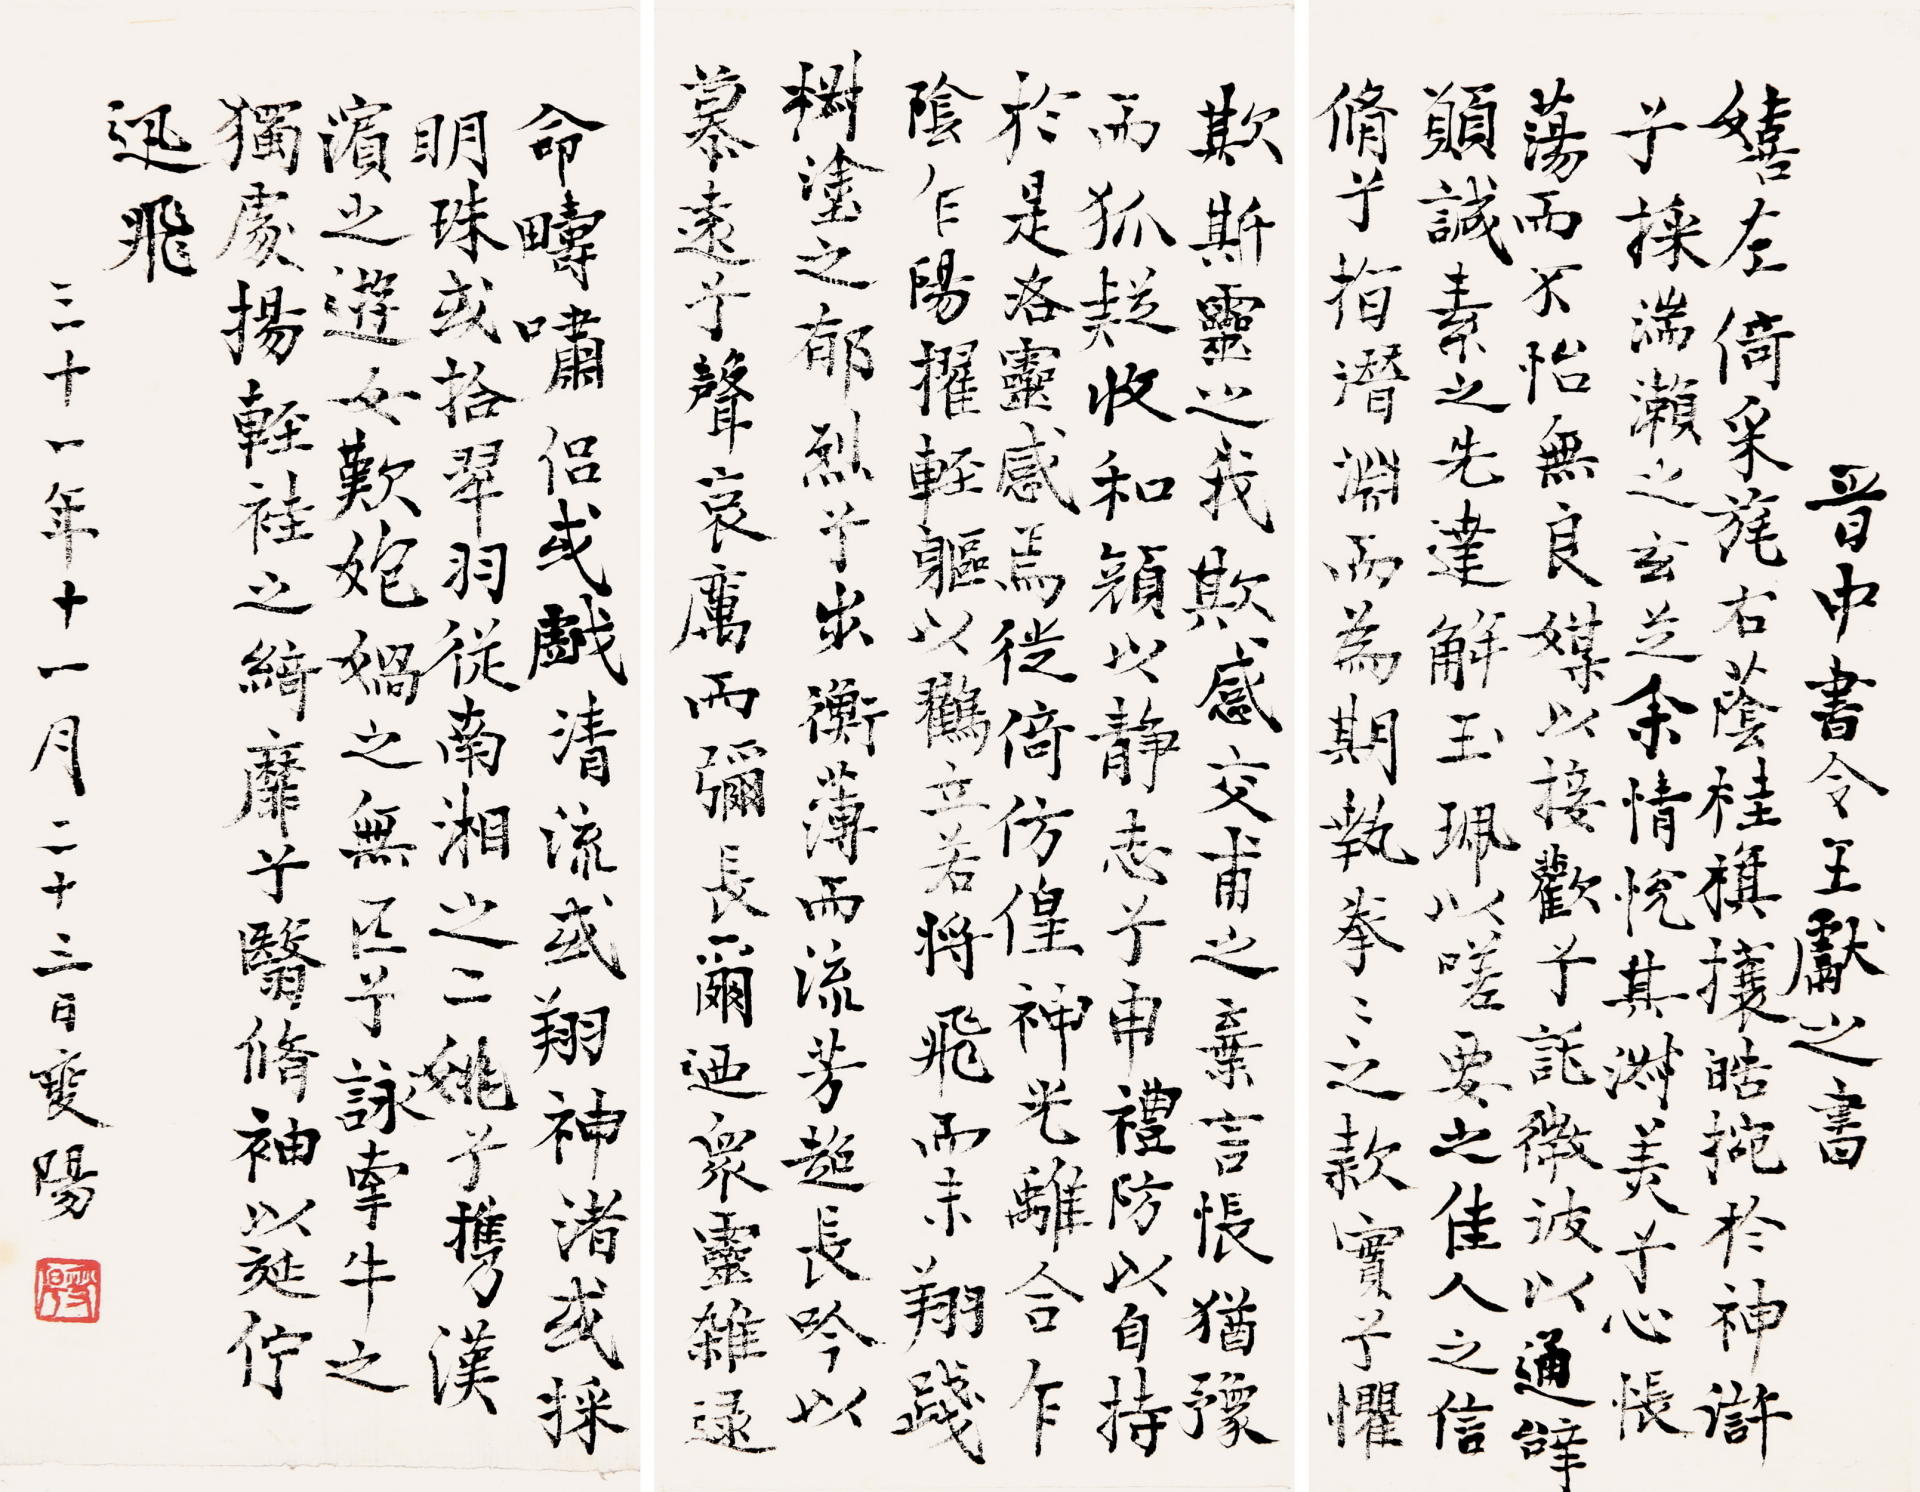 晉中書令王獻之書
嬉左倚采旄右蔭桂旗攘皓捥於神滸
兮採湍瀨之玄芝余情悅其淋美兮心悵
蕩而不怡無良媒以接歡兮託微波以通辞
願誠素之先達解玉珮以嗟要之佳人之信
脩兮指潛淵而為期執拳〻之款實兮懼
欺斯靈之我欺感交甫之棄言悵猶豫
而狐疑收和顏以静志兮申禮防以自持
於是洛靈感焉徙倚仿偟神光離合乍
陰乍陽擢輕軀以鶴立若將飛而未翔踐
椒塗之郁烈兮步衡薄而流芳超長吟以
慕遠兮聲哀厲而彌長爾迺衆靈雜遝
命疇嘯侣或戲清流或翔神渚或採
明珠或拾翠羽從南湘之二姚兮攜漢
濱之遊女歎娝媧之無匹兮詠牽牛之
獨處揚輕袿之綺靡兮翳脩袖以延佇
迅飛
三十一年十一月二十三日燮陽